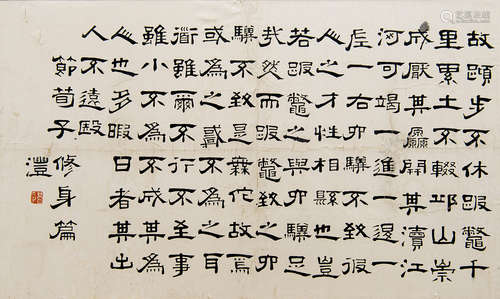 故蹞步不休跛鱉千
里累土不輟邱山崇
成厭其厵開其瀆江
河可竭一進一退一
左一右六驥不致彼
人之才性相縣也豈
若跛鱉之與六驥足
哉然而跛鱉致之六
驥不致是無佗故焉
或為之或不為之耳
道雖爾不行不至事
雖小不為不成其為
人也多暇日者其出
人不遠殹
節荀子修身篇
澧